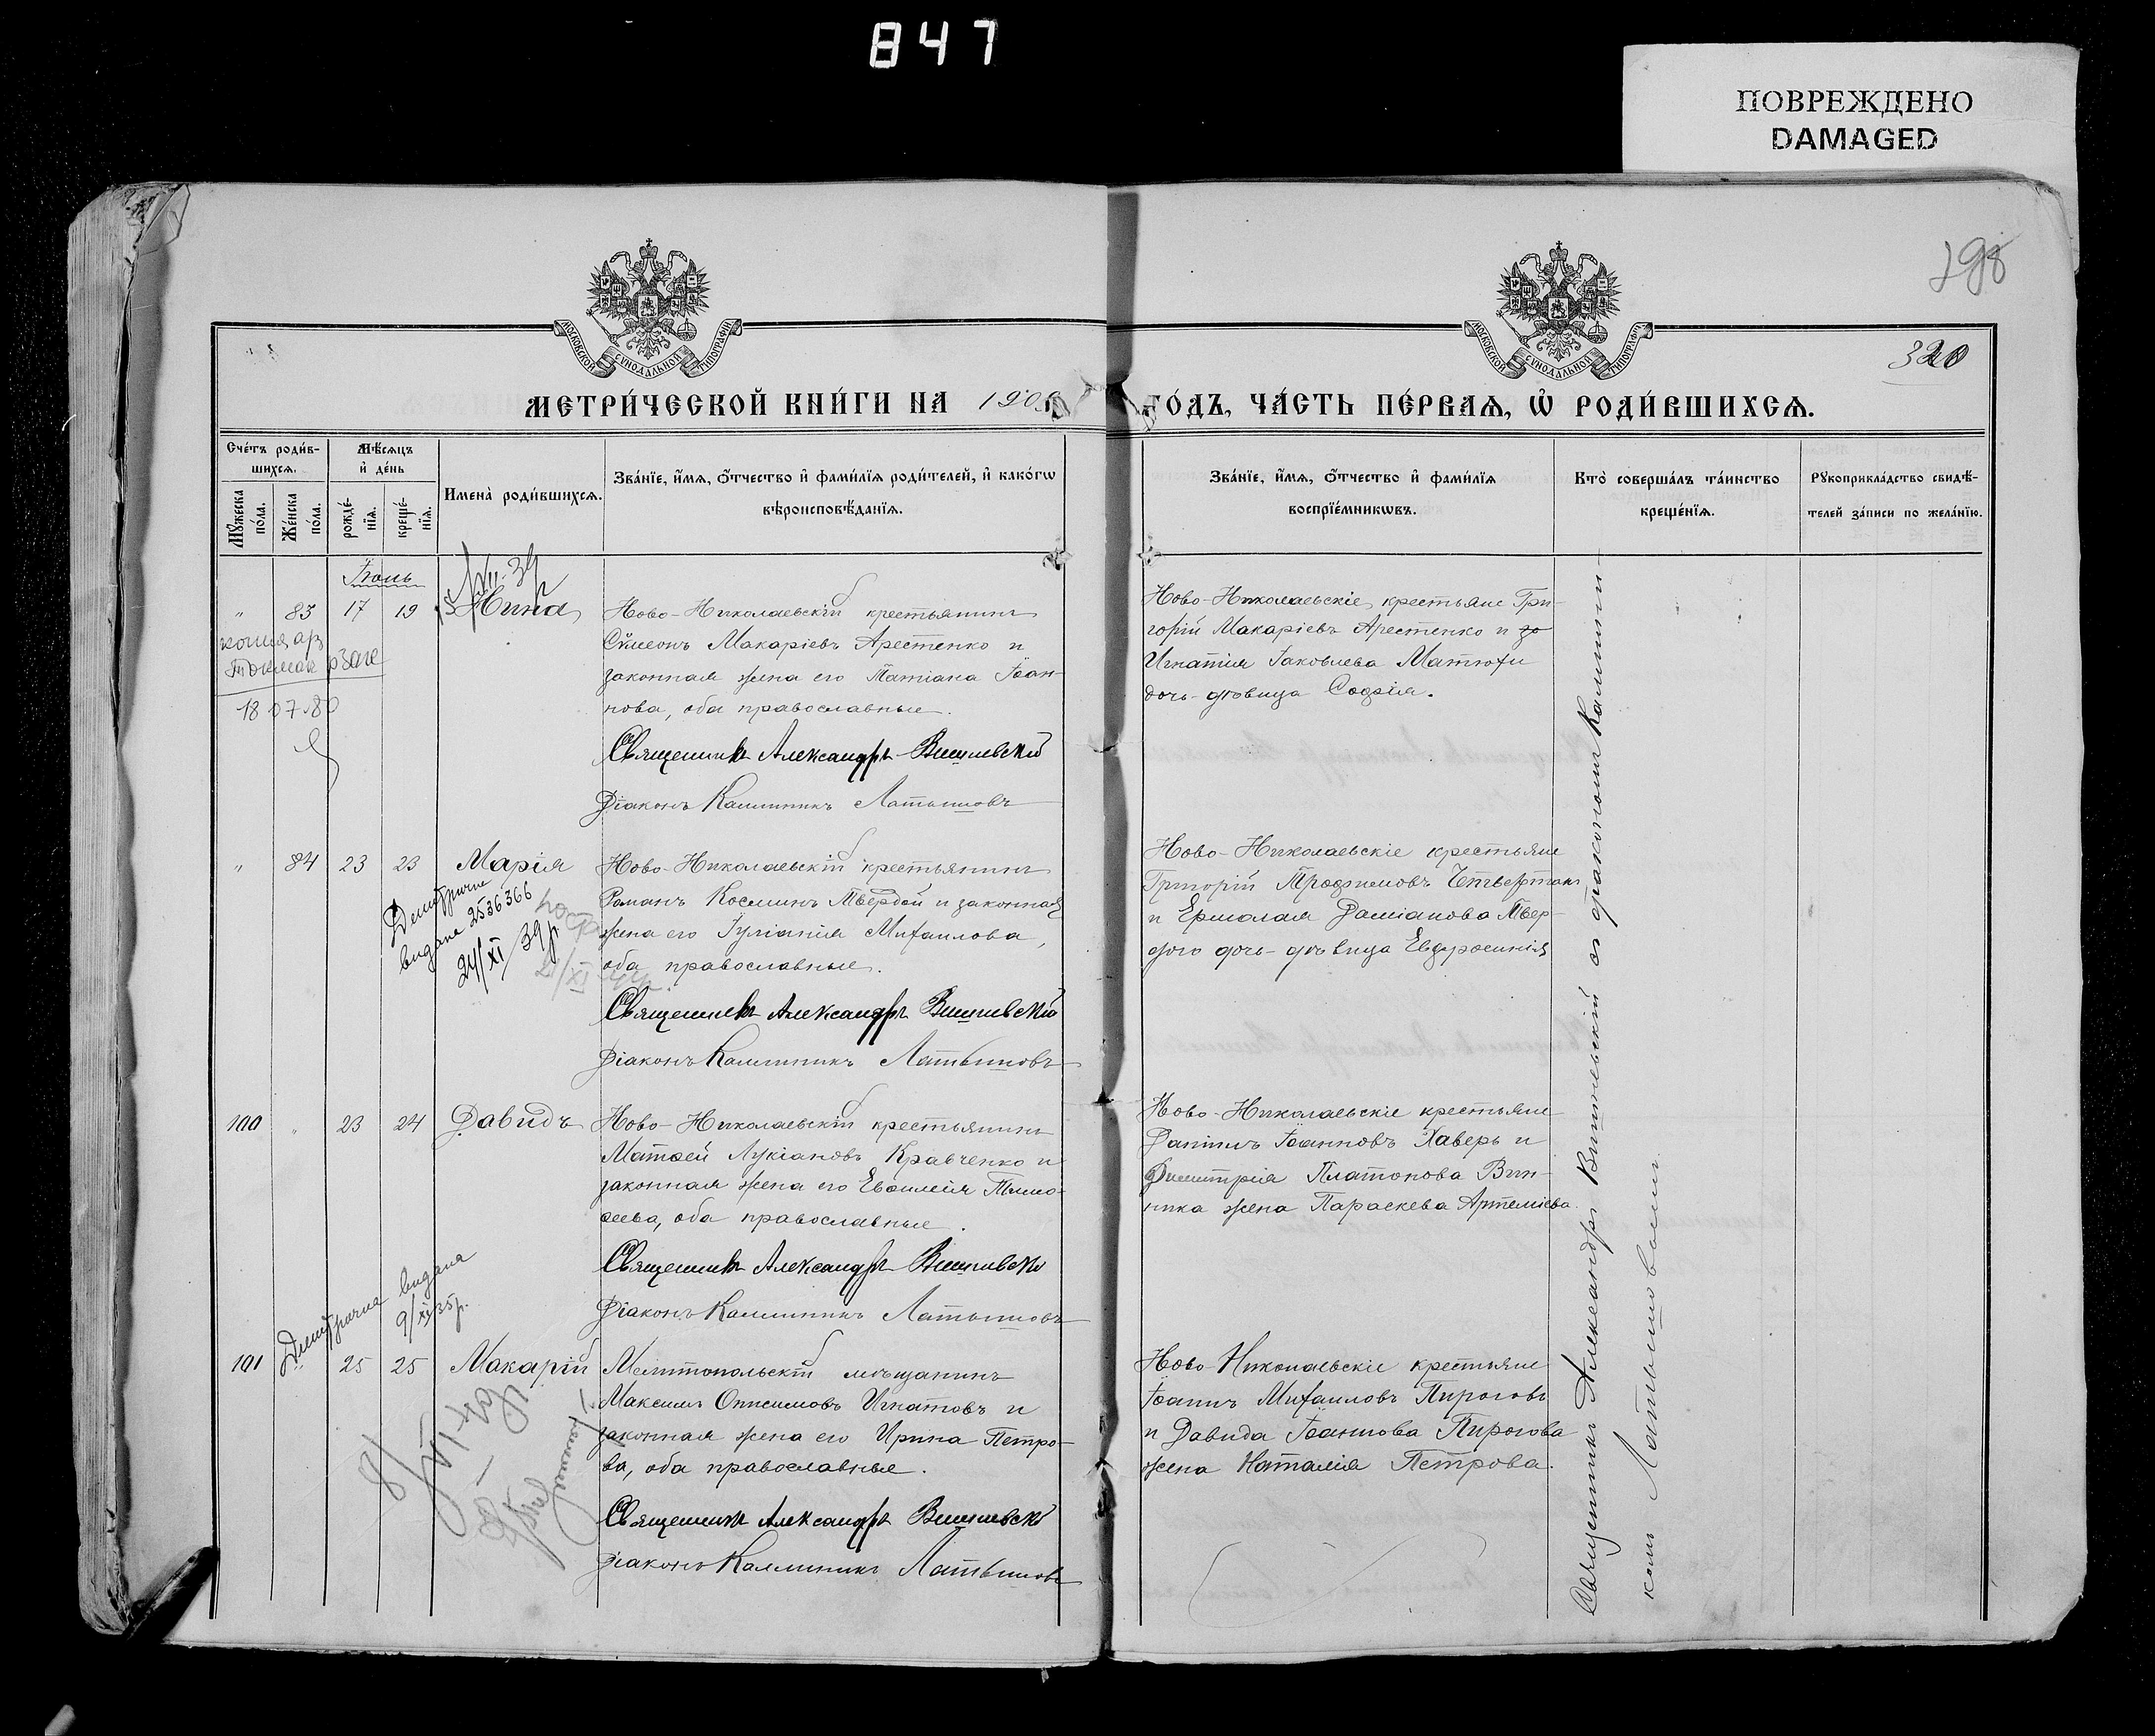 847
ПОВРЕЖДЕНО
DAMAGED
798
320
МОСКОВСКОЙ СѴНОДАЛЬНОЙ ТИПОГРАФІИ
МОСКОВСКОЙ СѴНОДАЛЬНОЙ ТИПОГРАФІИ
МЕТРИ́ЧЕСКОЙ КНИ́ГИ НА 190
ГО́ДЪ, ЧА́СТЬ ПЕ́РВАѦ, Ѡ҆ РОДИ́ВШИХСѦ.
Сче́тъ роди́в-
шихсѧ.
Мꙋ́жеска по́ла.
Же́нска по́ла.
Мѣ́сѧцъ
и҆ де́нь
рожде́-
нїѧ.
креще́-
нїѧ.
Имена̀ роди́вшихсѧ.
Зва́нїе, и҆́мѧ, ѻ҆́тчество и҆ фами́лїѧ роди́телей, и҆ како́гѡ
вѣроисповѣ́данїѧ.
Зва́нїе, и҆́мѧ, ѻ҆́тчество и҆ фами́лїѧ
воспрїе́мникѡвъ.
Кто̀ соверша́лъ та́инство
креще́нїѧ.
Рꙋкоприкла́дство свидѣ́-
телей за́писи по жела́нїю.
Іюль
" 83 17 19 Нина
Ново-Николаевскій крестьянинъ
Сѵмеонъ Макаріевъ Арестенко и
законная жена его Татіана Іоан-
нова, оба православные.
Священникъ Александръ Вишневскій
Діаконъ Каллиникъ Латышовъ
Ново-Николаевскіе крестьяне Гри-
горій Макаріевъ Арестенко и
Игнатія Іаковлева Матюхи
дочь-дѣвица Софія.
18 07 80
" 84 23 23 Марія
Ново-Николаевскій крестьянинъ
Романъ Косминъ Твердой и законная
жена его Іуліанія Михаилова,
оба православные.
Священникъ Александръ Вишневскій
Діаконъ Каллиникъ Латышовъ
Ново-Николаевскіе крестьяне
Григорій Трофимовъ
и Ермолая Даміанова Твер-
дого дочь-дѣвица Евфросинія
видане 2536366
24/XI/39р.
100 " 23 24 Давидъ
Ново-Николаевскій крестьянинъ
Матѳей Лукіановъ Кравченко и
законная жена его Евѳимія Тимо-
ѳеева, оба православные.
Священникъ Александръ Вишневскій
Діаконъ Каллиникъ Латышовъ
Ново-Николаевскіе крестьяне
Даніилъ Іоанновъ Хаверь и
Димитрія Платонова Вин-
ника жена Параскева Артеміева
видана
9/XI 35р.
101 " 25 25 Макарій
Мелитопольскій мѣщанинъ
Максимъ Онисимовъ Игнатовъ и
законная жена его Ирина Петро-
ва, оба православные.
Священникъ Александръ Вишневскій
Діаконъ Каллиникъ Латышовъ
Ново-Николаевскіе крестьяне
Іоаннъ Михаиловъ Пироговъ
и Давида Іоаннова Пирогова
жена Наталія Петрова.
Священникъ Александръ Вишневскій съ діакономъ Каллини-
комъ Латышовымъ.